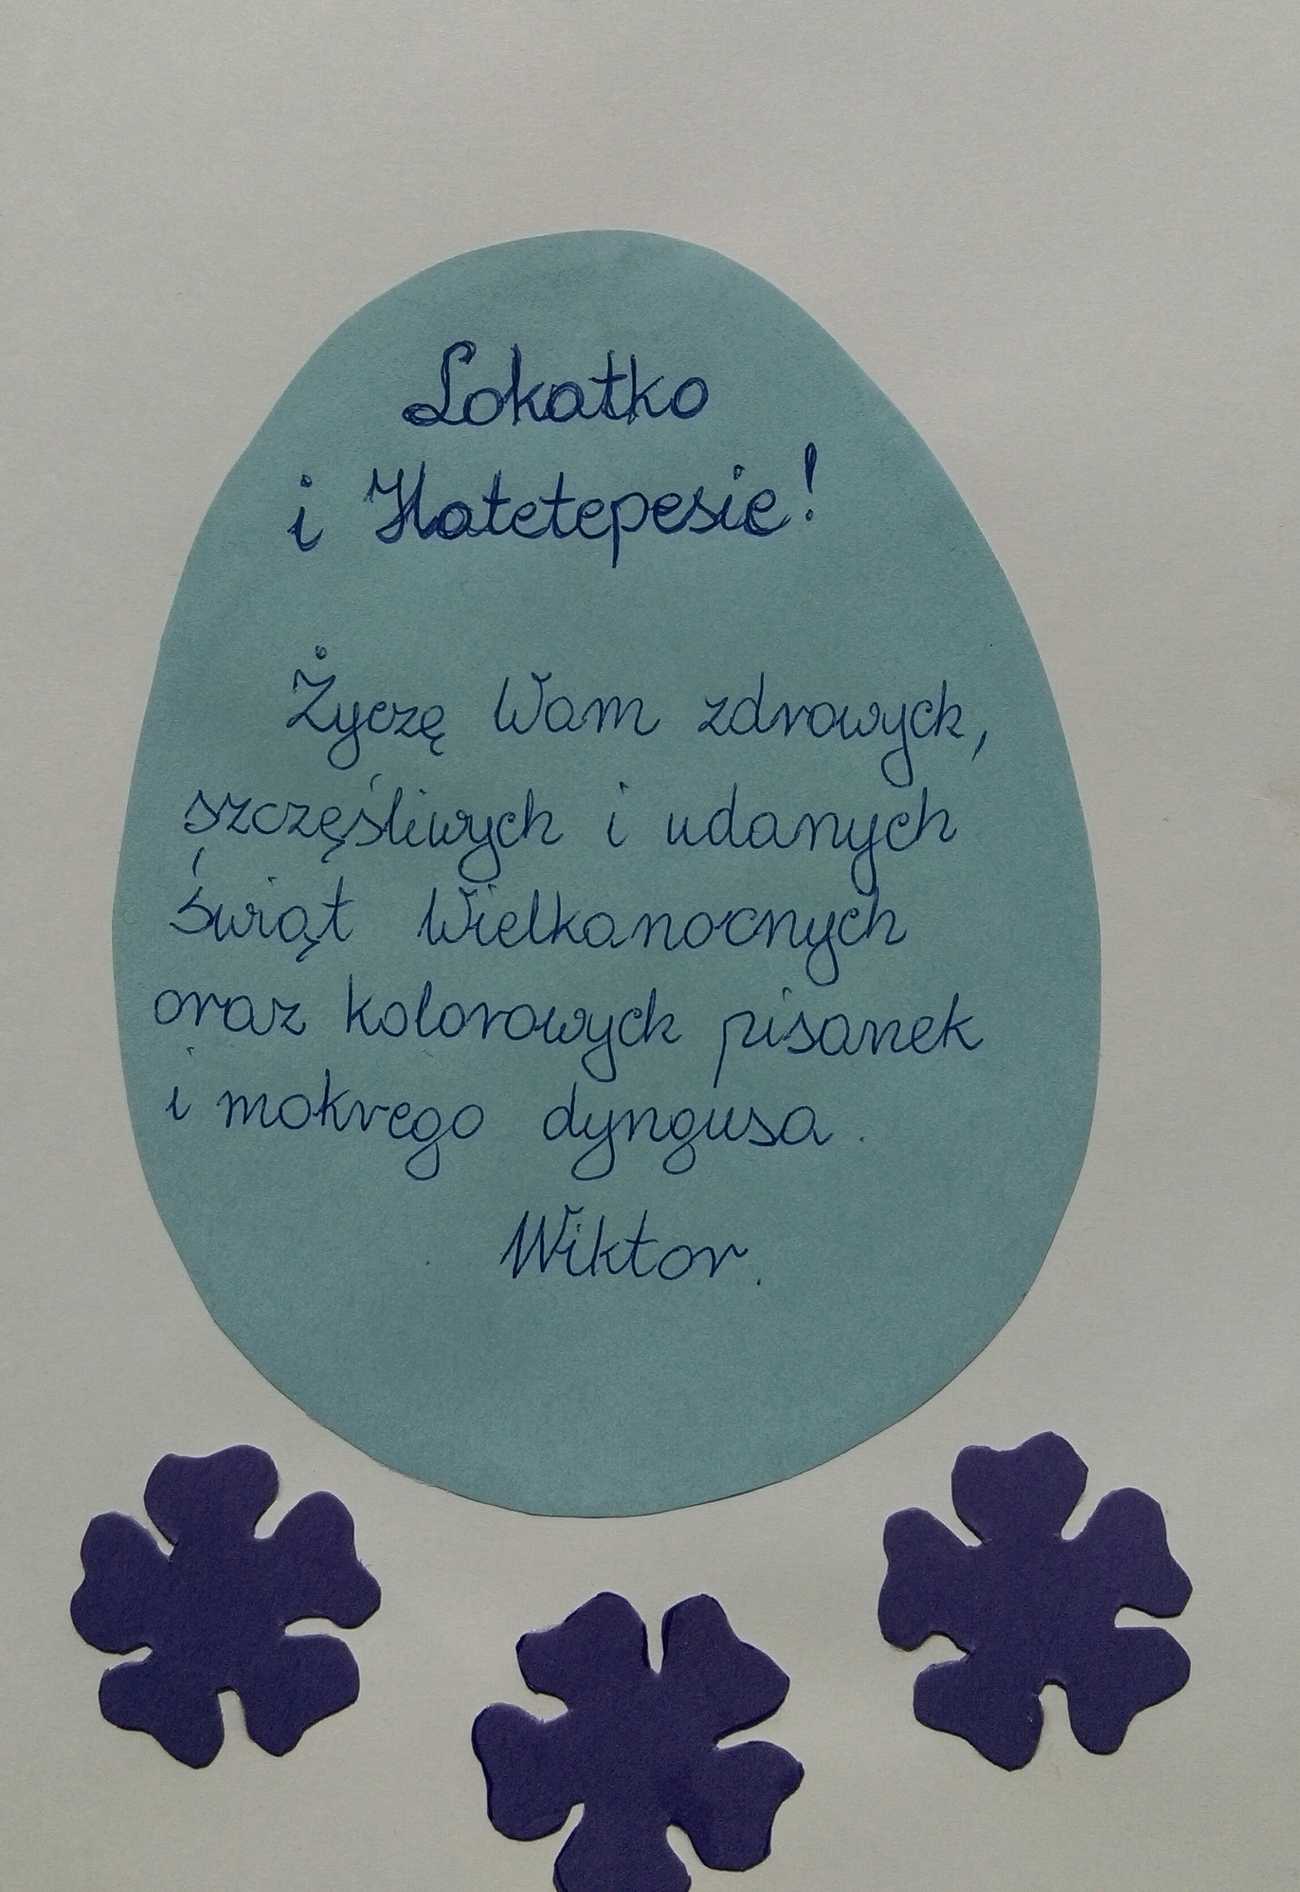 Lokatko
i Hatetepesie!
Życzę Wam zdrowych,
szczęśliwych i udanych
świąt Wielkanocnych
oraz kolorowych pisanek
i mokrego dyngusa.
Wiktor.